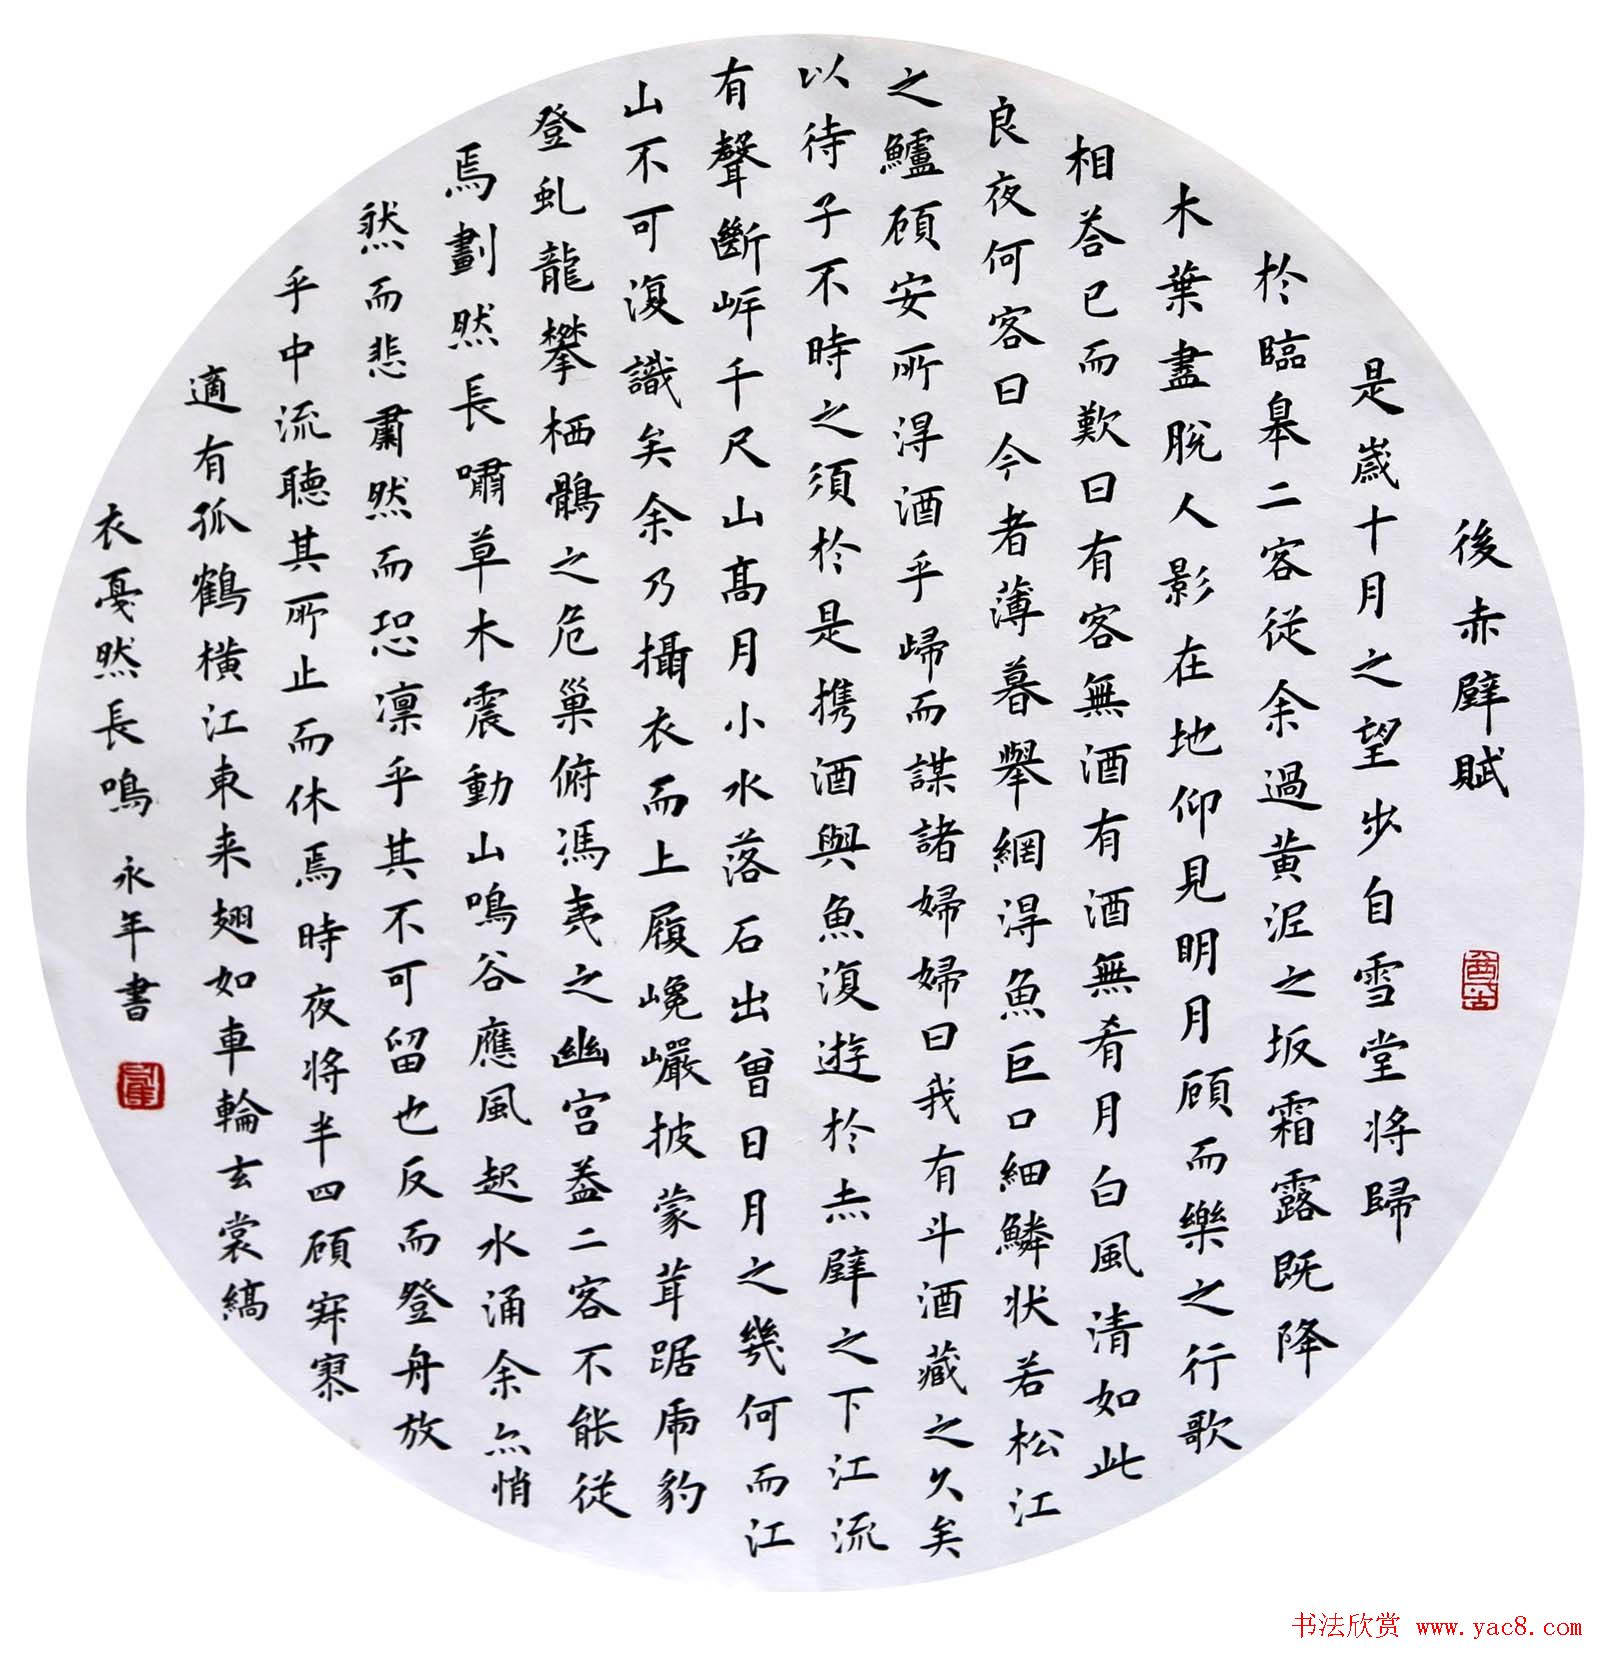 後赤壁賦
是歲十月之望步自雪堂將歸
於臨皋二客從余過黃泥之坂霜露既降
木葉盡脫人影在地仰見明月顧而樂之行歌
相荅已而歎曰有客無酒有酒無肴月白風清如此
良夜何客曰今者薄暮舉網得魚巨口細鱗狀若松江
之鱸顧安所得酒乎歸而謀諸婦婦曰我有斗酒藏之久矣
以待子不時之須於是携酒與魚復遊於赤壁之下江流
有聲斷岸千尺山高月小水落石出曾日月之幾何而江
山不可復識矣余乃攝衣而上履巉巖披蒙茸踞虎豹
登虬龍攀栖鶻之危巢俯馮夷之幽宮蓋二客不能從
焉劃然長嘯草木震動山鳴谷應風起水涌余亦悄
然而悲肅然而恐凛乎其不可留也反而登舟放
乎中流聴其所止而休焉時夜将半四顧寂寥
適有孤鶴橫江東来翅如車輪玄裳縞
衣戛然長鳴 永年書
书法欣赏 www.yac8.com